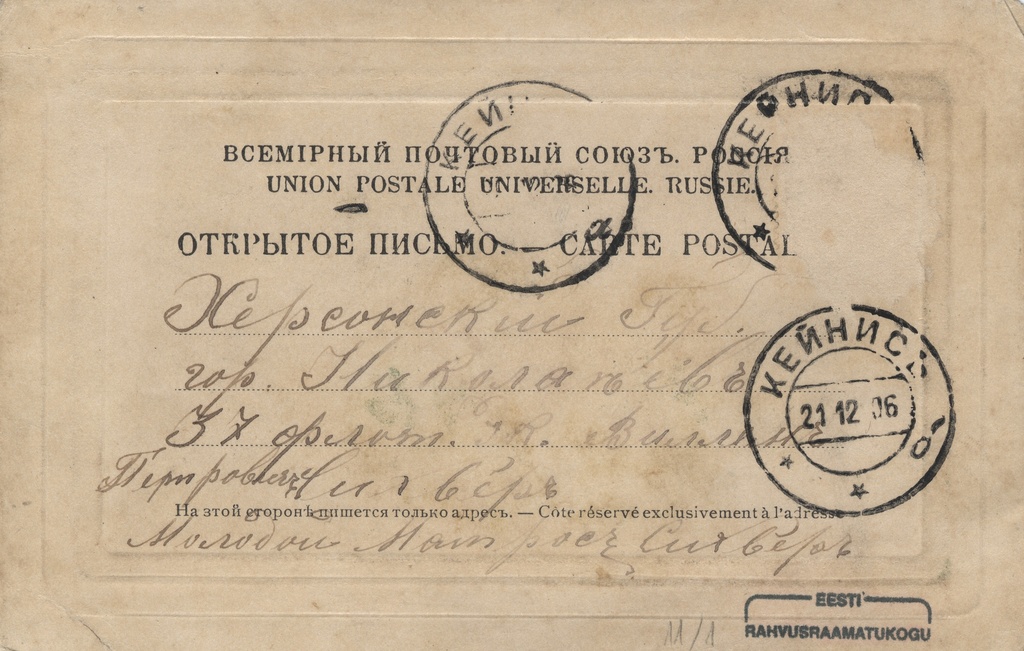 КЕЙН
КЕЙНИС
ВСЕМІРНЫЙ ПОЧТОВЫЙ СОЮЗЪ. РОССІЯ
UNION POSTALE UNIVERSELLE. RUSSIE.
ОТКРЫТОЕ ПИСЬМО. — CARTE POSTAL
Херсонскій Губ.
гор. Николаевъ
КЕЙНИС
21 12 06
37 флот.
Петровичъ Сильверъ
На этой сторонѣ пишется только адресъ. — Côté réservé exclusivement à l'adresse
Молодой Матросъ Сильверъ
EESTI
RAHVUSRAAMATUKOGU
11/1